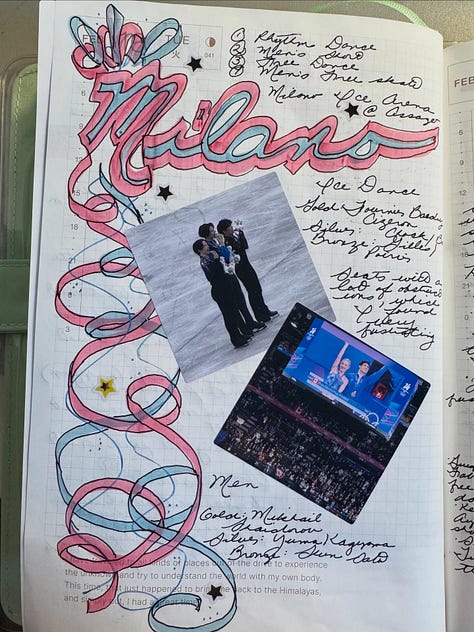 FEB
TUE
火
041
① Rhythm Dance
② Men's Short
③ Free Dance
④ Men's Free Skate
Milano Ice Arena
@ Assago
Milano
Ice Dance
Gold: Fournier Beaudry
Cizeron
Silver: Chock/
Bronze: Gilles/
Poirier
Seats with a
lot of obstruct
ions, which
I found
very
frustrating
Men
Gold: Mikhail
Shaidorov
Silver: Yuma Kagiyama
Bronze: Shun Sato
kinds of places out of the drive to experience
the unknown and try to understand the world with my own body.
This time, I just happened to bring me back to the Himalayas,
and simply put, I had a great time.
6
9
12
15
18
21
3
FEB